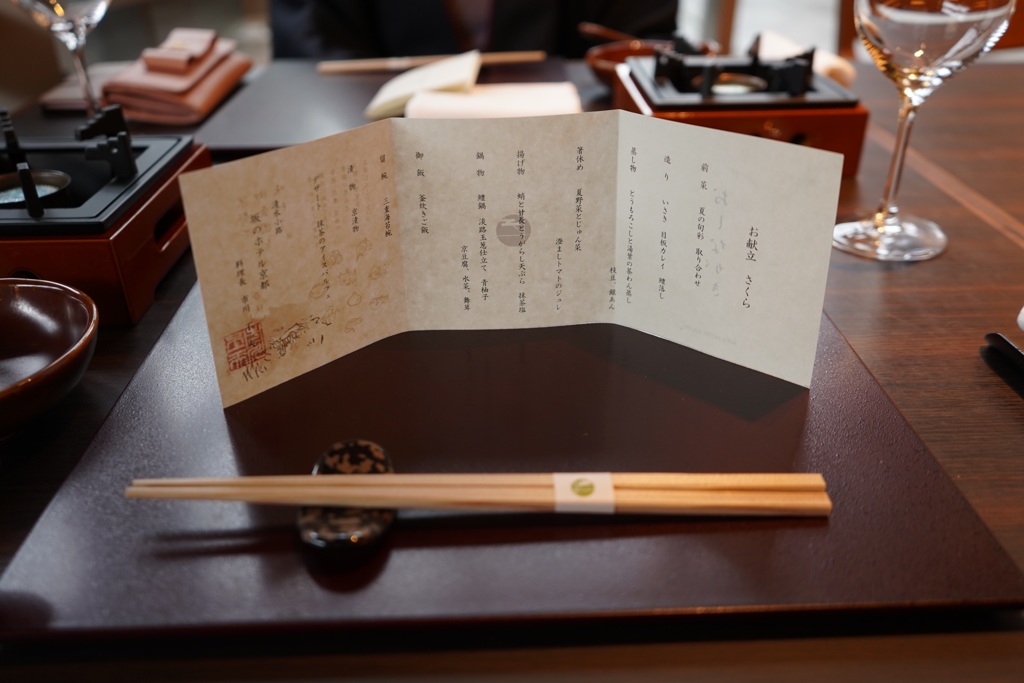 お献立　さくら
前　菜　夏の旬彩　取り合わせ
造　り　いさき　目板カレイ　鱧落し
蒸し物　とうもろこしと湯葉の茶わん蒸し
枝豆、銀あん
箸休め　夏野菜とじゅん菜
澄ましトマトのジュレ
揚げ物　蛸と甘長とうがらし天ぷら　抹茶塩
鍋　物　鱧鍋　淡路玉葱仕立て　青柚子
京豆腐、水菜、舞茸
御　飯　釜炊きご飯
留　椀　三重海苔椀
漬　物　京漬物
料理長　市川